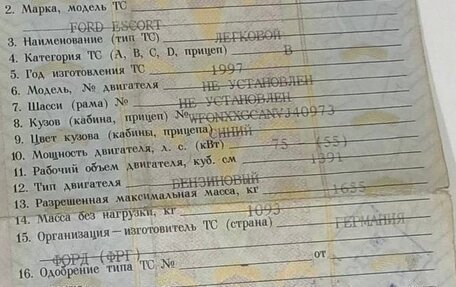 2. Марка, модель ТС
FORD ESCORT
3. Наименование (тип ТС) ЛЕГКОВОЙ
4. Категория ТС (А, В, С, D, прицеп) В
5. Год изготовления ТС 1997
6. Модель, № двигателя НЕ УСТАНОВЛЕН
7. Шасси (рама) № НЕ УСТАНОВЛЕН
8. Кузов (кабина, прицеп) № WFONXXGCANVJ40973
9. Цвет кузова (кабины, прицепа) СИНИЙ
10. Мощность двигателя, л. с. (кВт) 75 (55)
11. Рабочий объем двигателя, куб. см 1391
12. Тип двигателя БЕНЗИНОВЫЙ
13. Разрешенная максимальная масса, кг 1655
14. Масса без нагрузки, кг 1093
15. Организация—изготовитель ТС (страна) ГЕРМАНИЯ
ФОРД (ФРГ)
16. Одобрение типа ТС № - от -